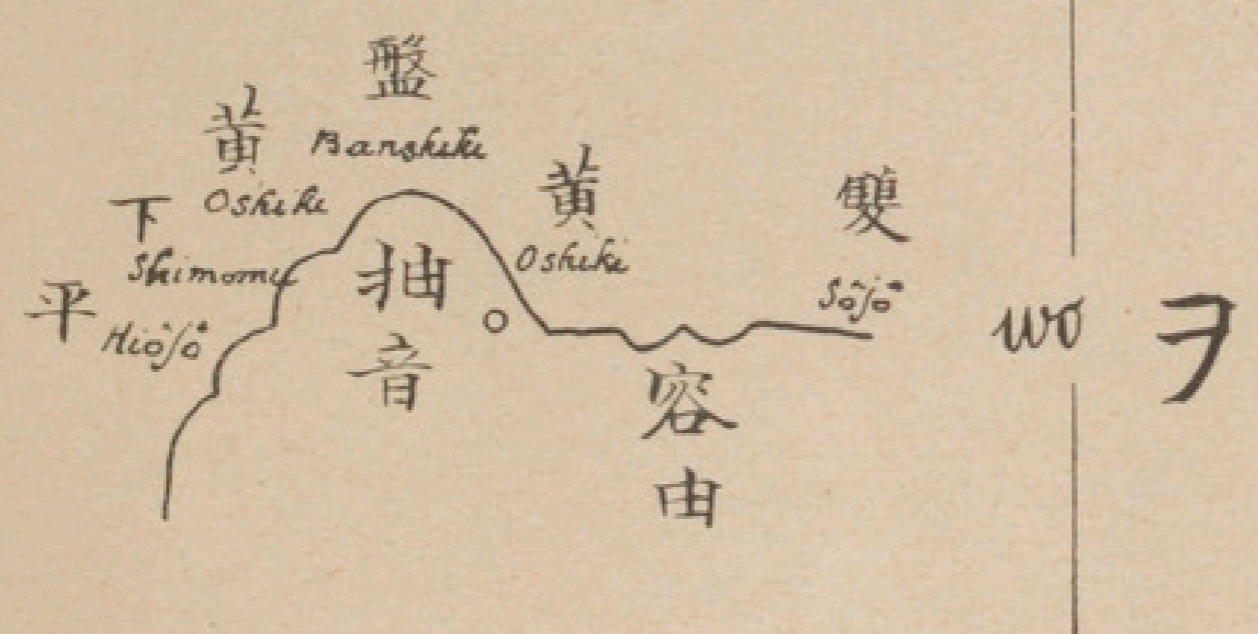 盤
Banshiki
黄
Oshiki
下
Shimomu
平
Hiôjô
抽音
黄
Oshiki
雙
Sôjô
容由
wo ヲ